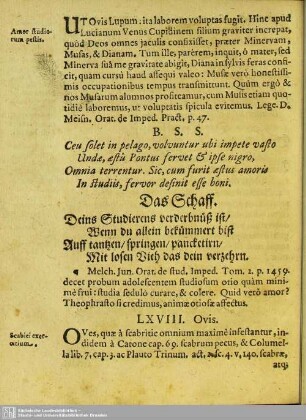 Amor studiorum pestis.
UT Ovis Lupum: ita laborem voluptas fugit. Hinc apud
Lucianum Venus Cupidinem filium graviter increpat,
quòd Deos omnes jaculis confixisset, præter Minervam,
Musas, & Dianam. Tum ille, parèrem, inquit, ô mater, sed
Minerva suâ me gravitate abigit, Diana in sylvis feras conficit,
quam cursû haud assequi valeo: Musæ verò honestissimis
occupationibus tempus transmittunt. Quùm ergò &
nos Musarum alumnos profiteamur, cum Musis etiam quotidiè
laboremus, ut voluptatis spicula evitemus. Lege. D.
Meisn. Orat. de Imped. Pract. p. 47.
B. S. S.
Ceu solet in pelago, volvuntur ubi impete vasto
Undæ, æstû Pontus fervet & ipse nigro,
Omnia terrentur. Sic, cum furit æstus amoris
In studiis, fervor desinit esse boni.
Das Schaff.
Deins Studierens verderbnüß ist/
Wenn du allein bekümmert bist
Auff tantzen/ springen/ pancketirn/
Mit losen Vieh das dein verzehrn.
Melch. Jun. Orat. de stud. Imped. Tom. 1. p. 1459.
decet probum adolescentem studiosum otio quàm minimè
frui: studia sedulò curare, & colere. Quid verò amor?
Theophrasto si credimus, animæ otiosæ affectus.
LXVIII. Ovis.
Scabiei exercitium.
OVes, quæ à scabritie omnium maximè infestantur, indidem
à Catone cap. 69. scabrum pecus, & Columella
lib. 7, cap. 3. ac Plauto Trinum. act. 2. sc. 4. v, 140. scabræ,
atq;